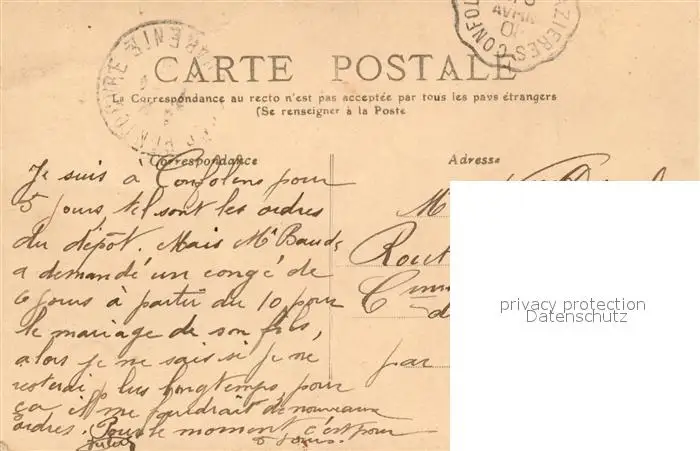 CARTE POSTALE
La Correspondance au recto n'est pas acceptée par tous les pays étrangers
(Se renseigner à la Poste
Correspondance
Adresse
Je suis à Confolens pour
5 jours, tel sont les ordres
du dépôt. Mais Mr Baud
a demandé un congé de
6 jours à partir du 10 pour
le mariage de son fils,
alors je ne sais si je ne
resterai plus longtemps, pour
ça il me faudrait de nouveaux
ordres. Pour le moment c'est pour
5 jours.
M
Rout
C
d
par
privacy protection
Datenschutz
CHARENTE
AZIERES CONFOL